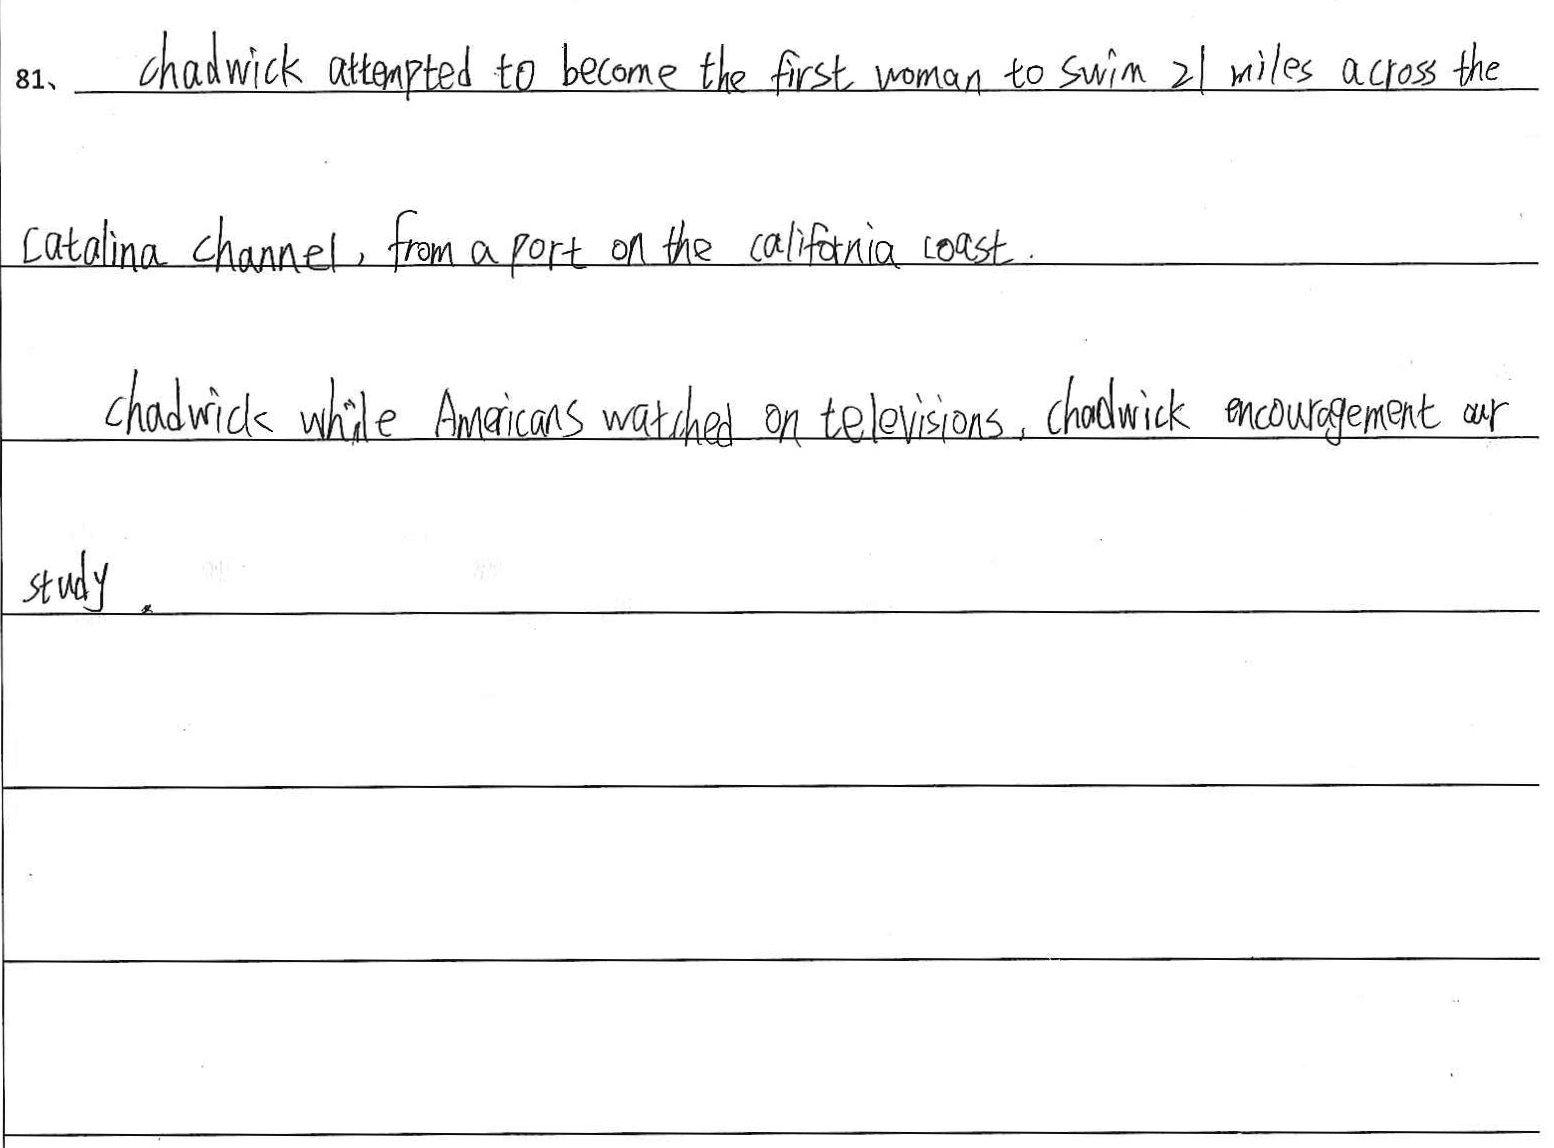 81、 chadwick attempted to become the first woman to swim 21 miles across the
Catalina channel, from a port on the california coast.
chadwick while Americans watched on televisions, chadwick encouragement our
study.